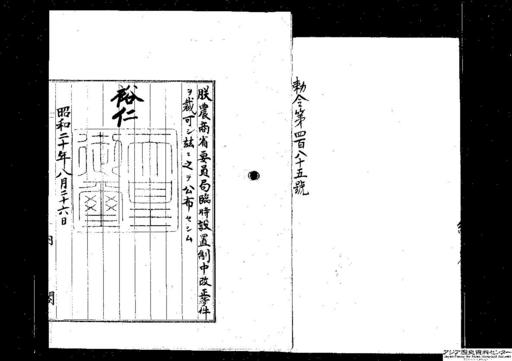 勅令第四百八十五號
朕農商省要員局臨時設置制中改正ノ件
ヲ裁可シ茲ニ之ヲ公布セシム
裕仁
天皇御璽
昭和二十年八月二十六日
内閣
アジア歴史資料センター